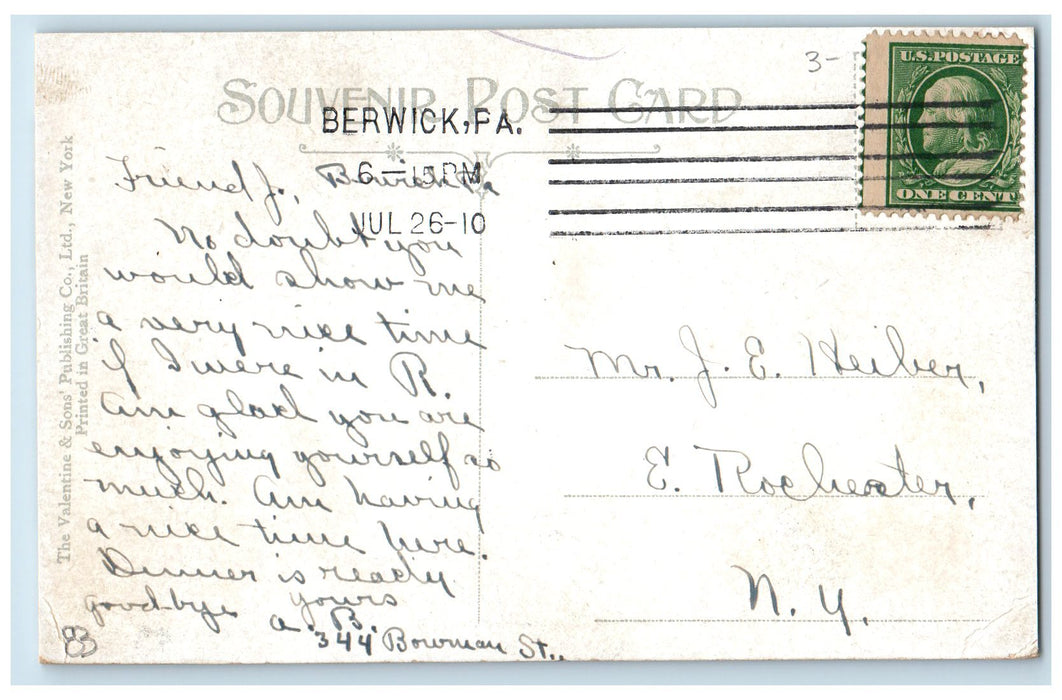 SOUVENIR POST CARD
3-
U.S. POSTAGE
ONE CENT
BERWICK, PA.
6-15 PM
JUL 26-10
The Valentine & Sons' Publishing Co., Ltd., New York
Printed in Great Britain
Friend J.
No doubt you
would show me
a very nice time
if I were in R.
Am glad you are
enjoying yourself so
much. Am having
a nice time here.
Dinner is ready
good-bye yours
a. B.
344 Bowman St.,
Mr. J. E. Heiber,
E. Rochester,
N. Y.